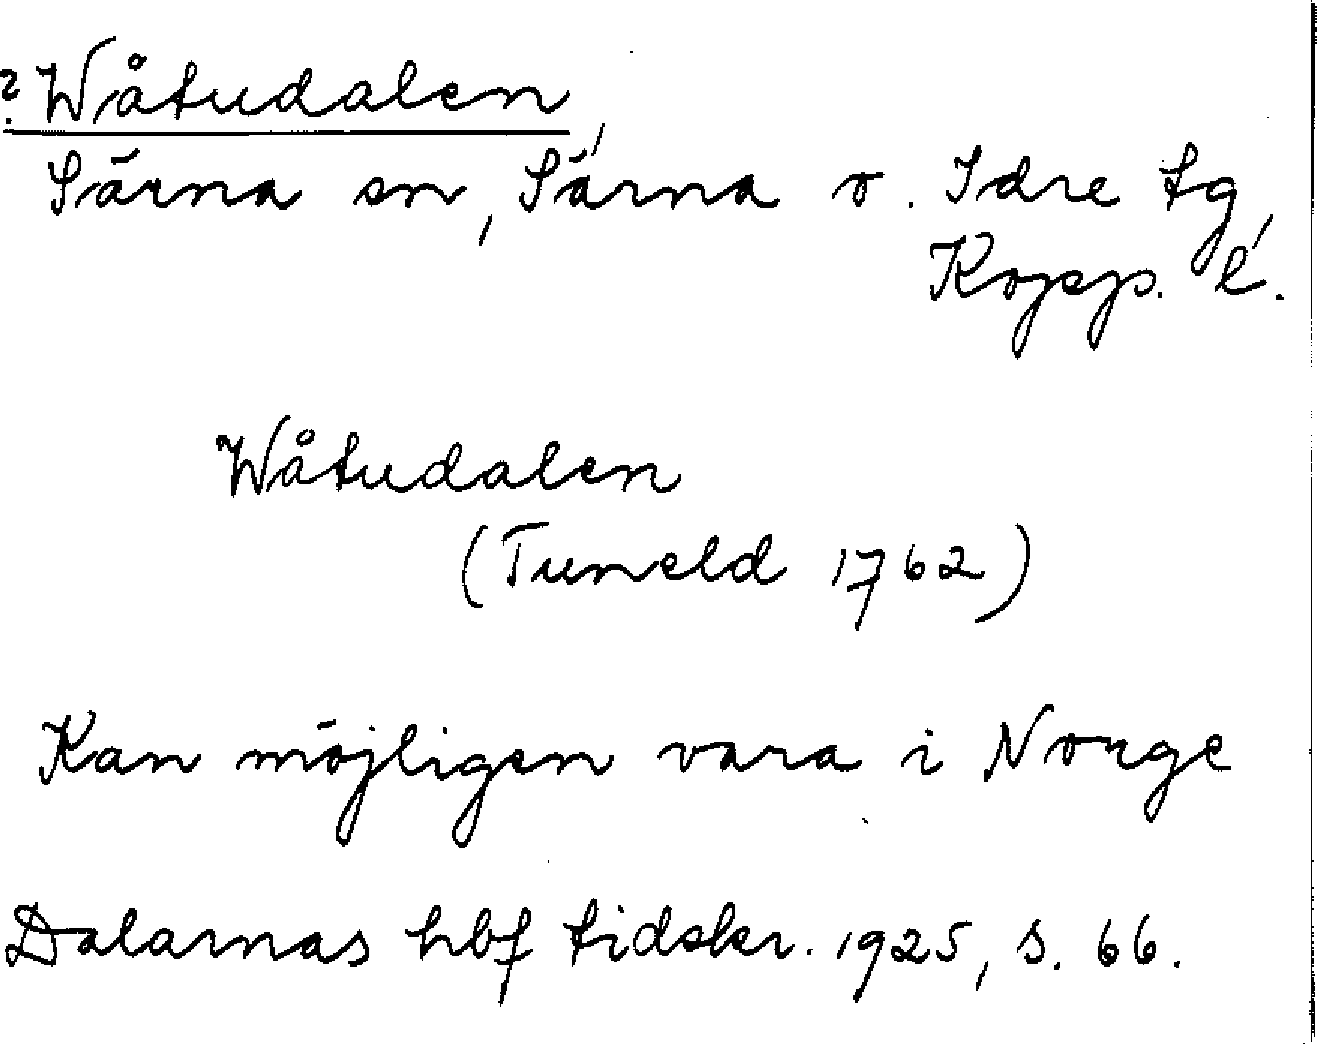 ? Wåtudalen,
Särna sn, Särna o. Idre tg,
Kopp. l.
Wåtudalen
(Tuneld 1762)
Kan möjligen vara i Norge
Dalarnas hbf tidskr. 1925, s. 66.